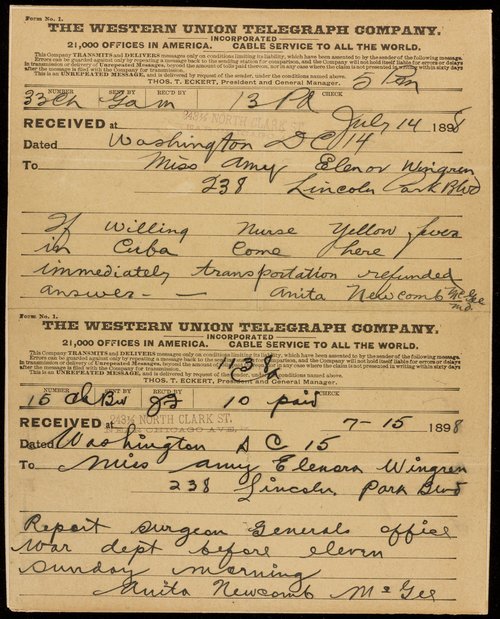 Form No. 1.
THE WESTERN UNION TELEGRAPH COMPANY.
INCORPORATED
21,000 OFFICES IN AMERICA. CABLE SERVICE TO ALL THE WORLD.
This Company TRANSMITS and DELIVERS messages only on conditions limiting its liability, which have been assented to by the sender of the following message.
Errors can be guarded against only by repeating a message back to the sending station for comparison, and the Company will not hold itself liable for errors or delays
in transmission or delivery of Unrepeated Messages, beyond the amount of tolls paid thereon, nor in any case where the claim is not presented in writing within sixty days
after the message is filed with the Company for transmission.
This is an UNREPEATED MESSAGE, and is delivered by request of the sender, under the conditions named above.
THOS. T. ECKERT, President and General Manager.
5 Pm
NUMBER SENT BY REC'D BY CHECK
33Ch Ga m 13 Pd
2434½ NORTH CLARK ST.
RECEIVED at July 14 1898
Dated Washington D C 14
To Miss Amy Elenor Wingren
238 Lincoln Park Blvd
If Willing Nurse Yellow fever
in Cuba Come here
immediately transportation refunded
answer - - Anita Newcomb McGee
M.D.
Form No. 1.
THE WESTERN UNION TELEGRAPH COMPANY.
INCORPORATED
21,000 OFFICES IN AMERICA. CABLE SERVICE TO ALL THE WORLD.
This Company TRANSMITS and DELIVERS messages only on conditions limiting its liability, which have been assented to by the sender of the following message.
Errors can be guarded against only by repeating a message back to the sending station for comparison, and the Company will not hold itself liable for errors or delays
in transmission or delivery of Unrepeated Messages, beyond the amount of tolls paid thereon, nor in any case where the claim is not presented in writing within sixty days
after the message is filed with the Company for transmission.
This is an UNREPEATED MESSAGE, and is delivered by request of the sender, under the conditions named above.
THOS. T. ECKERT, President and General Manager.
1138a
NUMBER SENT BY REC'D BY CHECK
15 Ch Bw 10 paid
2434½ NORTH CLARK ST.
NEAR CHICAGO AVE.
RECEIVED at 7-15 1898
Dated Washington D C 15
To Miss Amy Elenora Wingren
238 Lincoln Park Blvd
Report Surgeon Generals office
War dept before eleven
Sunday morning
Anita Newcomb McGee